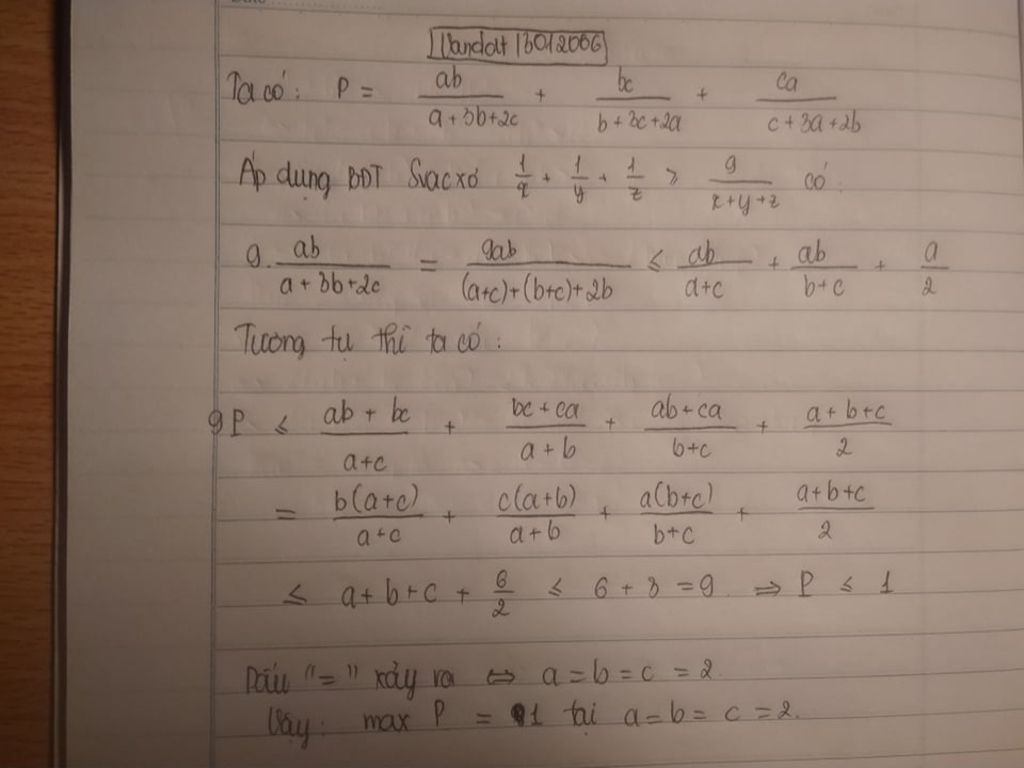 Vandat 13012006
Ta có: P = ab/(a+3b+2c) + bc/(b+3c+2a) + ca/(c+3a+2b)
Áp dụng BĐT Svacxơ 1/x + 1/y + 1/z ≥ 9/(x+y+z) có:
9. ab/(a+3b+2c) = 9ab/((a+c)+(b+c)+2b) ≤ ab/(a+c) + ab/(b+c) + a/2
Tương tự thì ta có:
9P ≤ (ab+bc)/(a+c) + (bc+ca)/(a+b) + (ab+ca)/(b+c) + (a+b+c)/2
= b(a+c)/(a+c) + c(a+b)/(a+b) + a(b+c)/(b+c) + (a+b+c)/2
≤ a+b+c + 6/2 ≤ 6+3=9 ⇒ P ≤ 1
Dấu "=" xảy ra ⇔ a=b=c=2
Vậy: max P = 1 tại a=b=c=2.